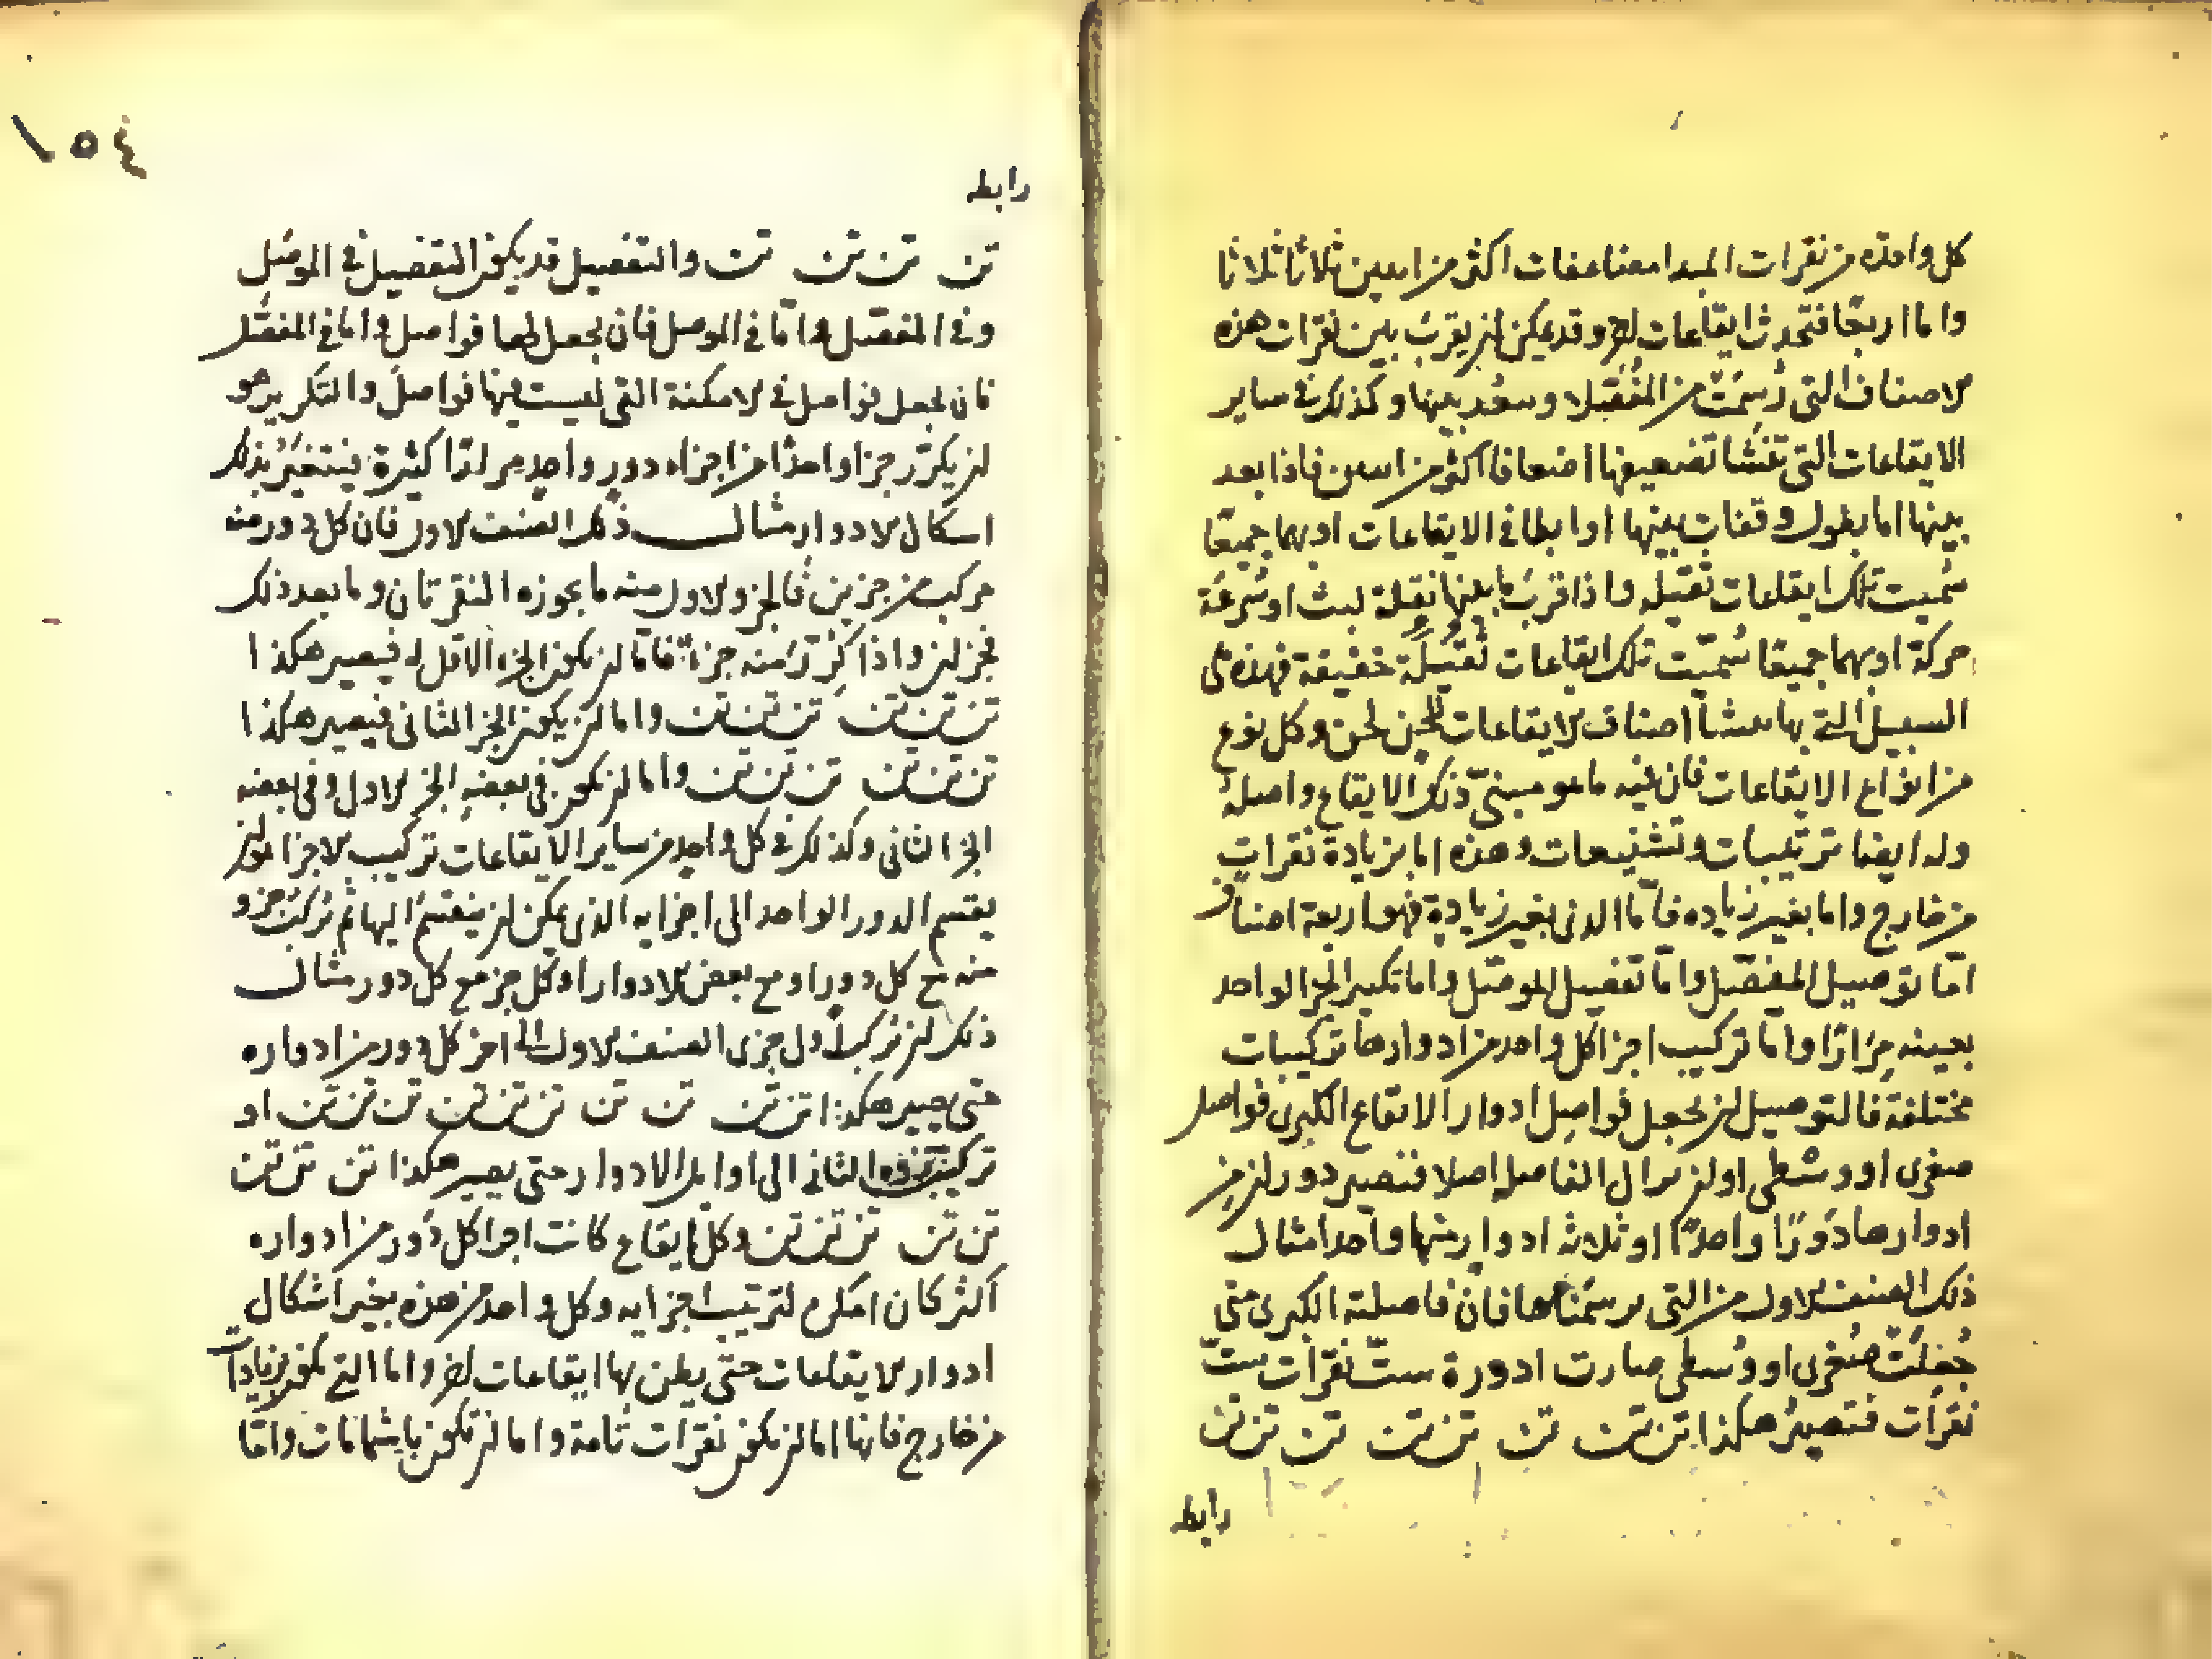 كل واحدة من نقرات المبدا مضاعفات اكثر من اسين ثلاثا ثلاثا
واما اربعا فتحدث ايقاعات اخر وقد يمكن ان يقرب بين نقرات هذه
الاصناف التى رسمت من المفصلا وسعد بينها وكذلك فى ساير
الايقاعات التى تنشا تضعيفها اضعافا اكثر من اسين فاذا بعد
بينها اما بطول وقفات بينها او ابطا فى الايقاعات او بهما جميعا
سميت تلك ايقاعات ثقيلة واذا قرب ما بينها نقلة لبث او سرعة
حركة او بهما جميعا سميت تلك ايقاعات ثقيلة خفيفة فهذه هى
السبيل التى بها ىىشا اصناف الايقاعات للحن لحن وكل نوع
من انواع الايقاعات فان فيه ما هو مبنى ذلك الايقاع واصله
وله ايضا ترتيبات وتشنيعات وهذه اما بزيادة نقرات
من خارج واما بغير زياده فاما الذى بغير زيادة فهو اربعة اصناف
اما توصيل المفصل واما تفصيل الموصل واما تكير الجزا الواحد
بعينه مرارا واما تركيب اجزا كل واحد من ادوارها تركيبات
مختلفة فالتوصيل ان يجعل فواصل ادوار الايقاع الكبرى فواصل
صغرى او وسطى او ان يزال الفاصل اصلا فتصير دوران من
ادوارها دورا واحدا او ثلاثه ادوار منها واحدا مثال
ذلك الصنف الاول من التى رسمناها فان فاصلته الكبرى متى
جعلت صغرى او وسطى صارت ادوره ست نقرات ست
نقرات فتصير هكذا تن تن تن تن تن تن تن تن
رابطه
١٥٤
رابطه
تن تن تن تن والتفصيل قد يكون التفصيل فى الموصل
وفى المفصل واما فى الموصل فان يجعل لها فواصل واما فى المفصل
فان يجعل فواصل فى الامكنة التى ليست فيها فواصل والتكرير هو
ان يكرر جزا واحدا من اجزاء دور واحد مرارا كثيرة فيتغير بذلك
اشكال الادوار مثال ذلك الصنف الاول فان كل دور منه
مركب من جزين فالجزو الاول منه ما يحوزه النقرتان وما بعد ذلك
فجز ان واذا كررت منه جزا فاما ان يكون الجزء الاقل له فيصير هكذا
تن تن تن تن تن تن واما ان يكون الجز الثانى فيصير هكذا
تن تن تن تن تن تن واما ان يكون فى بعضه الجز الاول وفى بعضه
الجز الثانى وكذلك فى كل واحد من ساير الايقاعات تركيب الاجزا هو ان
يقتسم الدور الواحد الى اجزايه الذى يمكن ان ينقسم اليها ثم تركب جزو
منه مع كل دور او مع بعض الادوار او كل جز مع كل دور مثال
ذلك ان تركب اول جزى الصنف الاول الى اخر كل دور من ادواره
حتى يصير هكذا تن تن تن تن تن تن تن تن تن تن او
تركب جزوه الثانى الى اوايل الادوار حتى يصير هكذا تن تن تن
تن تن تن تن تن وكل ايقاع كانت اجزا كل دور من ادواره
اكثر كان امكن لترتيب اجزايه وكل واحد من هذه يغير اشكال
ادوار الايقاعات حتى يظن بها ايقاعات اخر واما التى تكون بزيادات
من خارج فانها اما ان يكون نقرات تامة واما ان تكون باشمامات واما